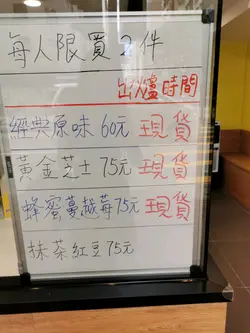 每人限買2件
出爐時間
經典原味60元 現貨
黃金芝士75元 現貨
蜂蜜蔓越莓75元 現貨
抹茶紅豆75元